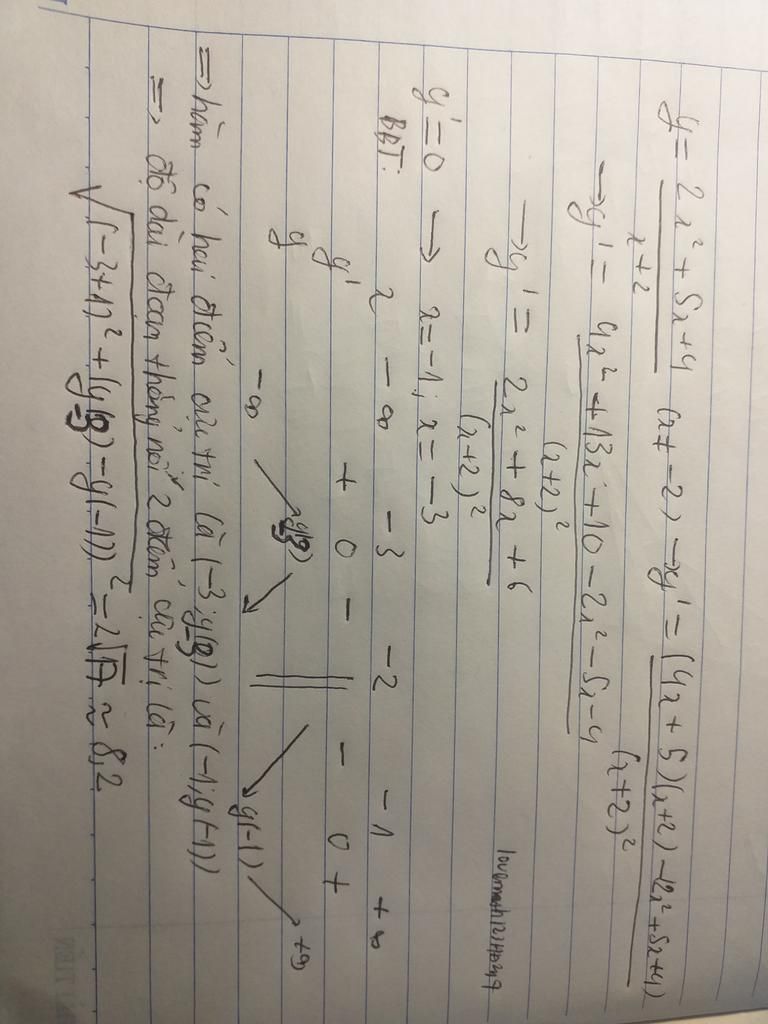 y = (2x² + 5x + 4)/(x + 2) (x ≠ -2) → y' = ((4x + 5)(x + 2) - (2x² + 5x + 4))/(x + 2)²
→ y' = (4x² + 13x + 10 - 2x² - 5x - 4)/(x + 2)²
→ y' = (2x² + 8x + 6)/(x + 2)²
y' = 0 → x = -1; x = -3
BBT: x -∞ -3 -2 -1 +∞
y' + 0 - || - 0 +
y -∞ ↗ y(-3) ↘ || ↘ y(-1) ↗ +∞
⇒ hàm có hai điểm cực trị là (-3; y(-3)) và (-1; y(-1))
⇒ độ dài đoạn thẳng nối 2 điểm cực trị là:
√((-3+1)² + (y(-3) - y(-1))²) = 2√17 ≈ 8,2